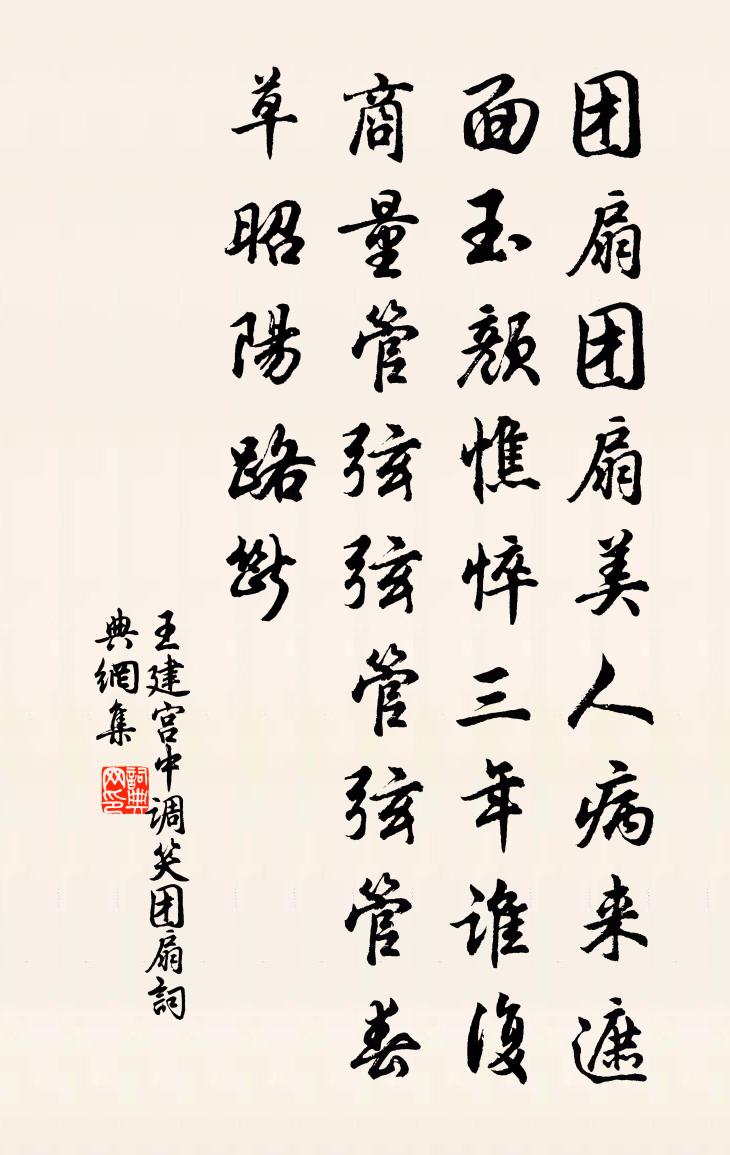 团扇团扇美人病来遮
面玉颜憔悴三年谁復
商量管弦弦管弦管春
草昭陽路断
王建宫中调笑团扇詞
典網集
詞典网印